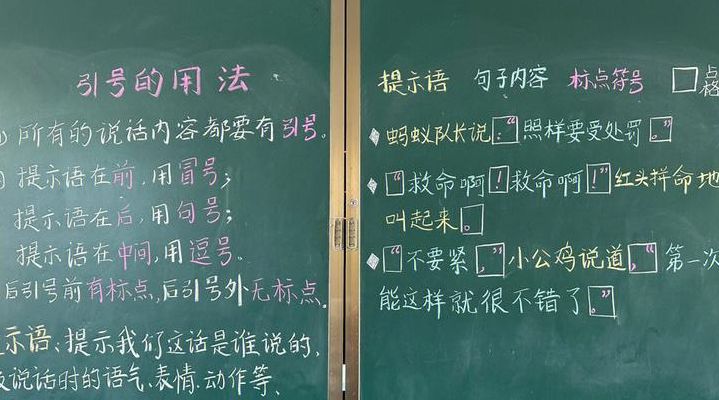 引号的用法
所有的说话内容都要有引号。
提示语在前,用冒号;
提示语在后,用句号;
提示语在中间,用逗号。
后引号前有标点,后引号外无标点。
示语:提示我们这话是谁说的,
说话时的语气、表情、动作等、
提示语 句子内容 标点符号 □占格
蚂蚁队长说:“照样要受处罚。”
“救命啊!救命啊!”红头拼命地
叫起来。
“不要紧,”小公鸡说道,“第一次
能这样就很不错了。”